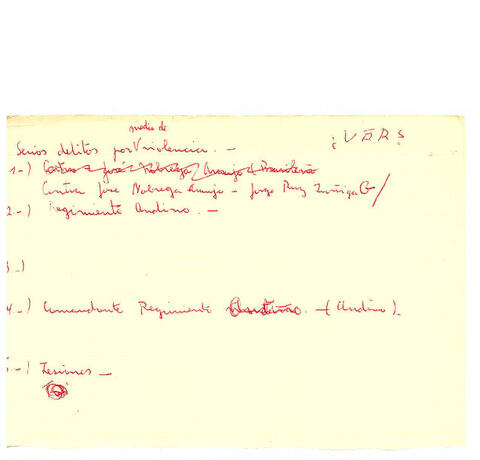 medio de
Serios delitos por violencia. -
¡VER!
1-) Contra José Nobrega Araujo + Brasileño
Contra José Nobrega Araujo - Jorge Ruy Zuñiga G/
2-) Regimiento Andino. -
3-)
4-) Comandante Regimiento - (Andino).
5-) Lesiones -